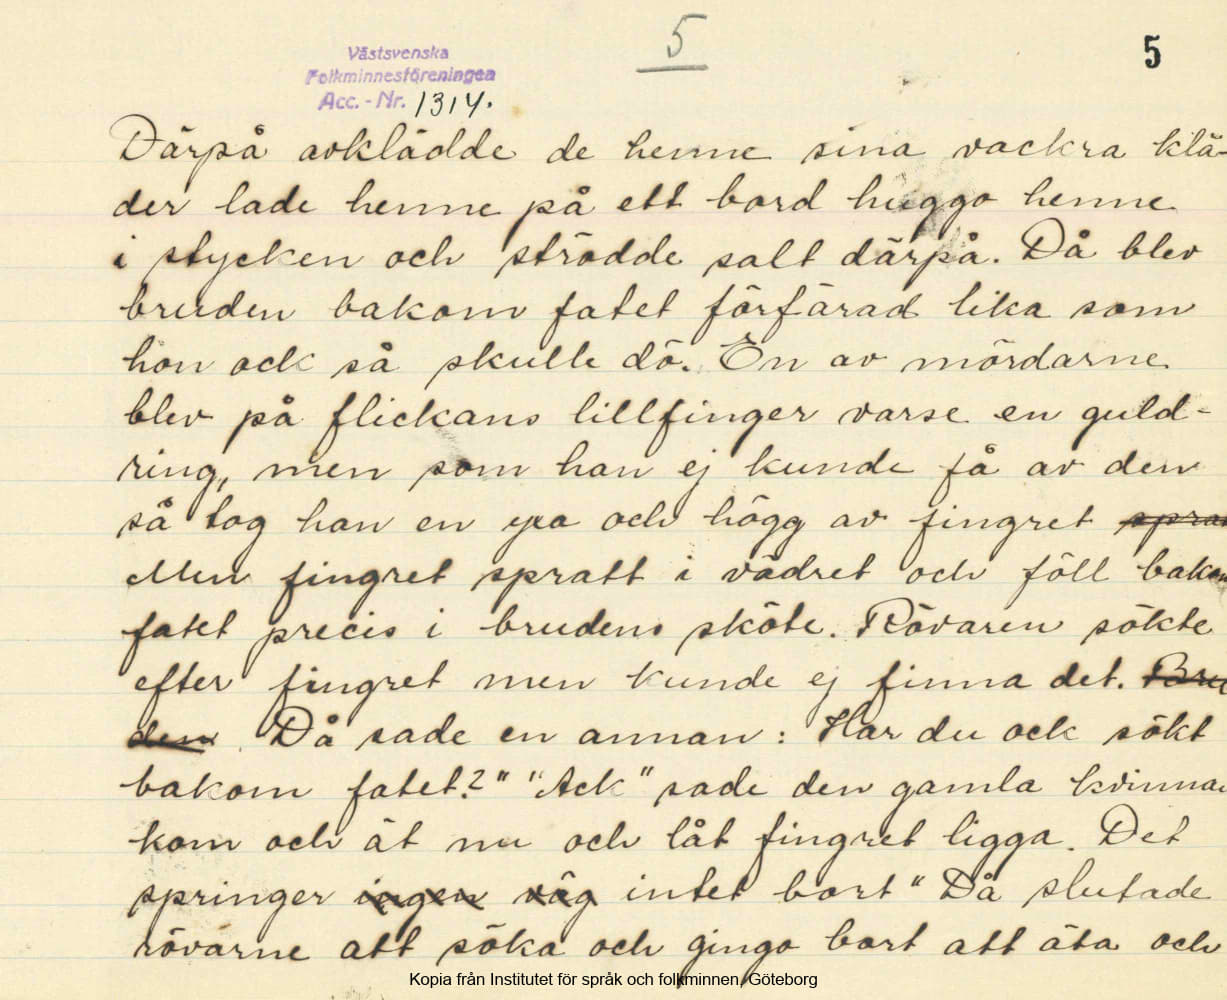 5
5
Västsvenska
Folkminnesföreningen
Acc.-Nr. 1314.
Därpå avklädde de henne sina vackra klä-
der lade henne på ett bord huggo henne
i stycken och strödde salt därpå. Då blev
bruden bakom fatet förfärad lika som
hon ock så skulle dö. En av mördarne
blev på flickans lillfinger varse en guld-
ring, men som han ej kunde få av den
så tog han en yxa och högg av fingret
Men fingret spratt i vädret och föll bakom
fatet precis i brudens sköte. Rövaren sökte
efter fingret men kunde ej finna det. Bru
den Då sade en annan: Har du ock sökt
bakom fatet?" "Ack" sade den gamla kvinnan
kom och ät nu och låt fingret ligga. Det
springer ingen väg intet bort" Då slutade
rövarne att söka och gingo bort att äta och
Kopia från Institutet för språk och folkminnen, Göteborg